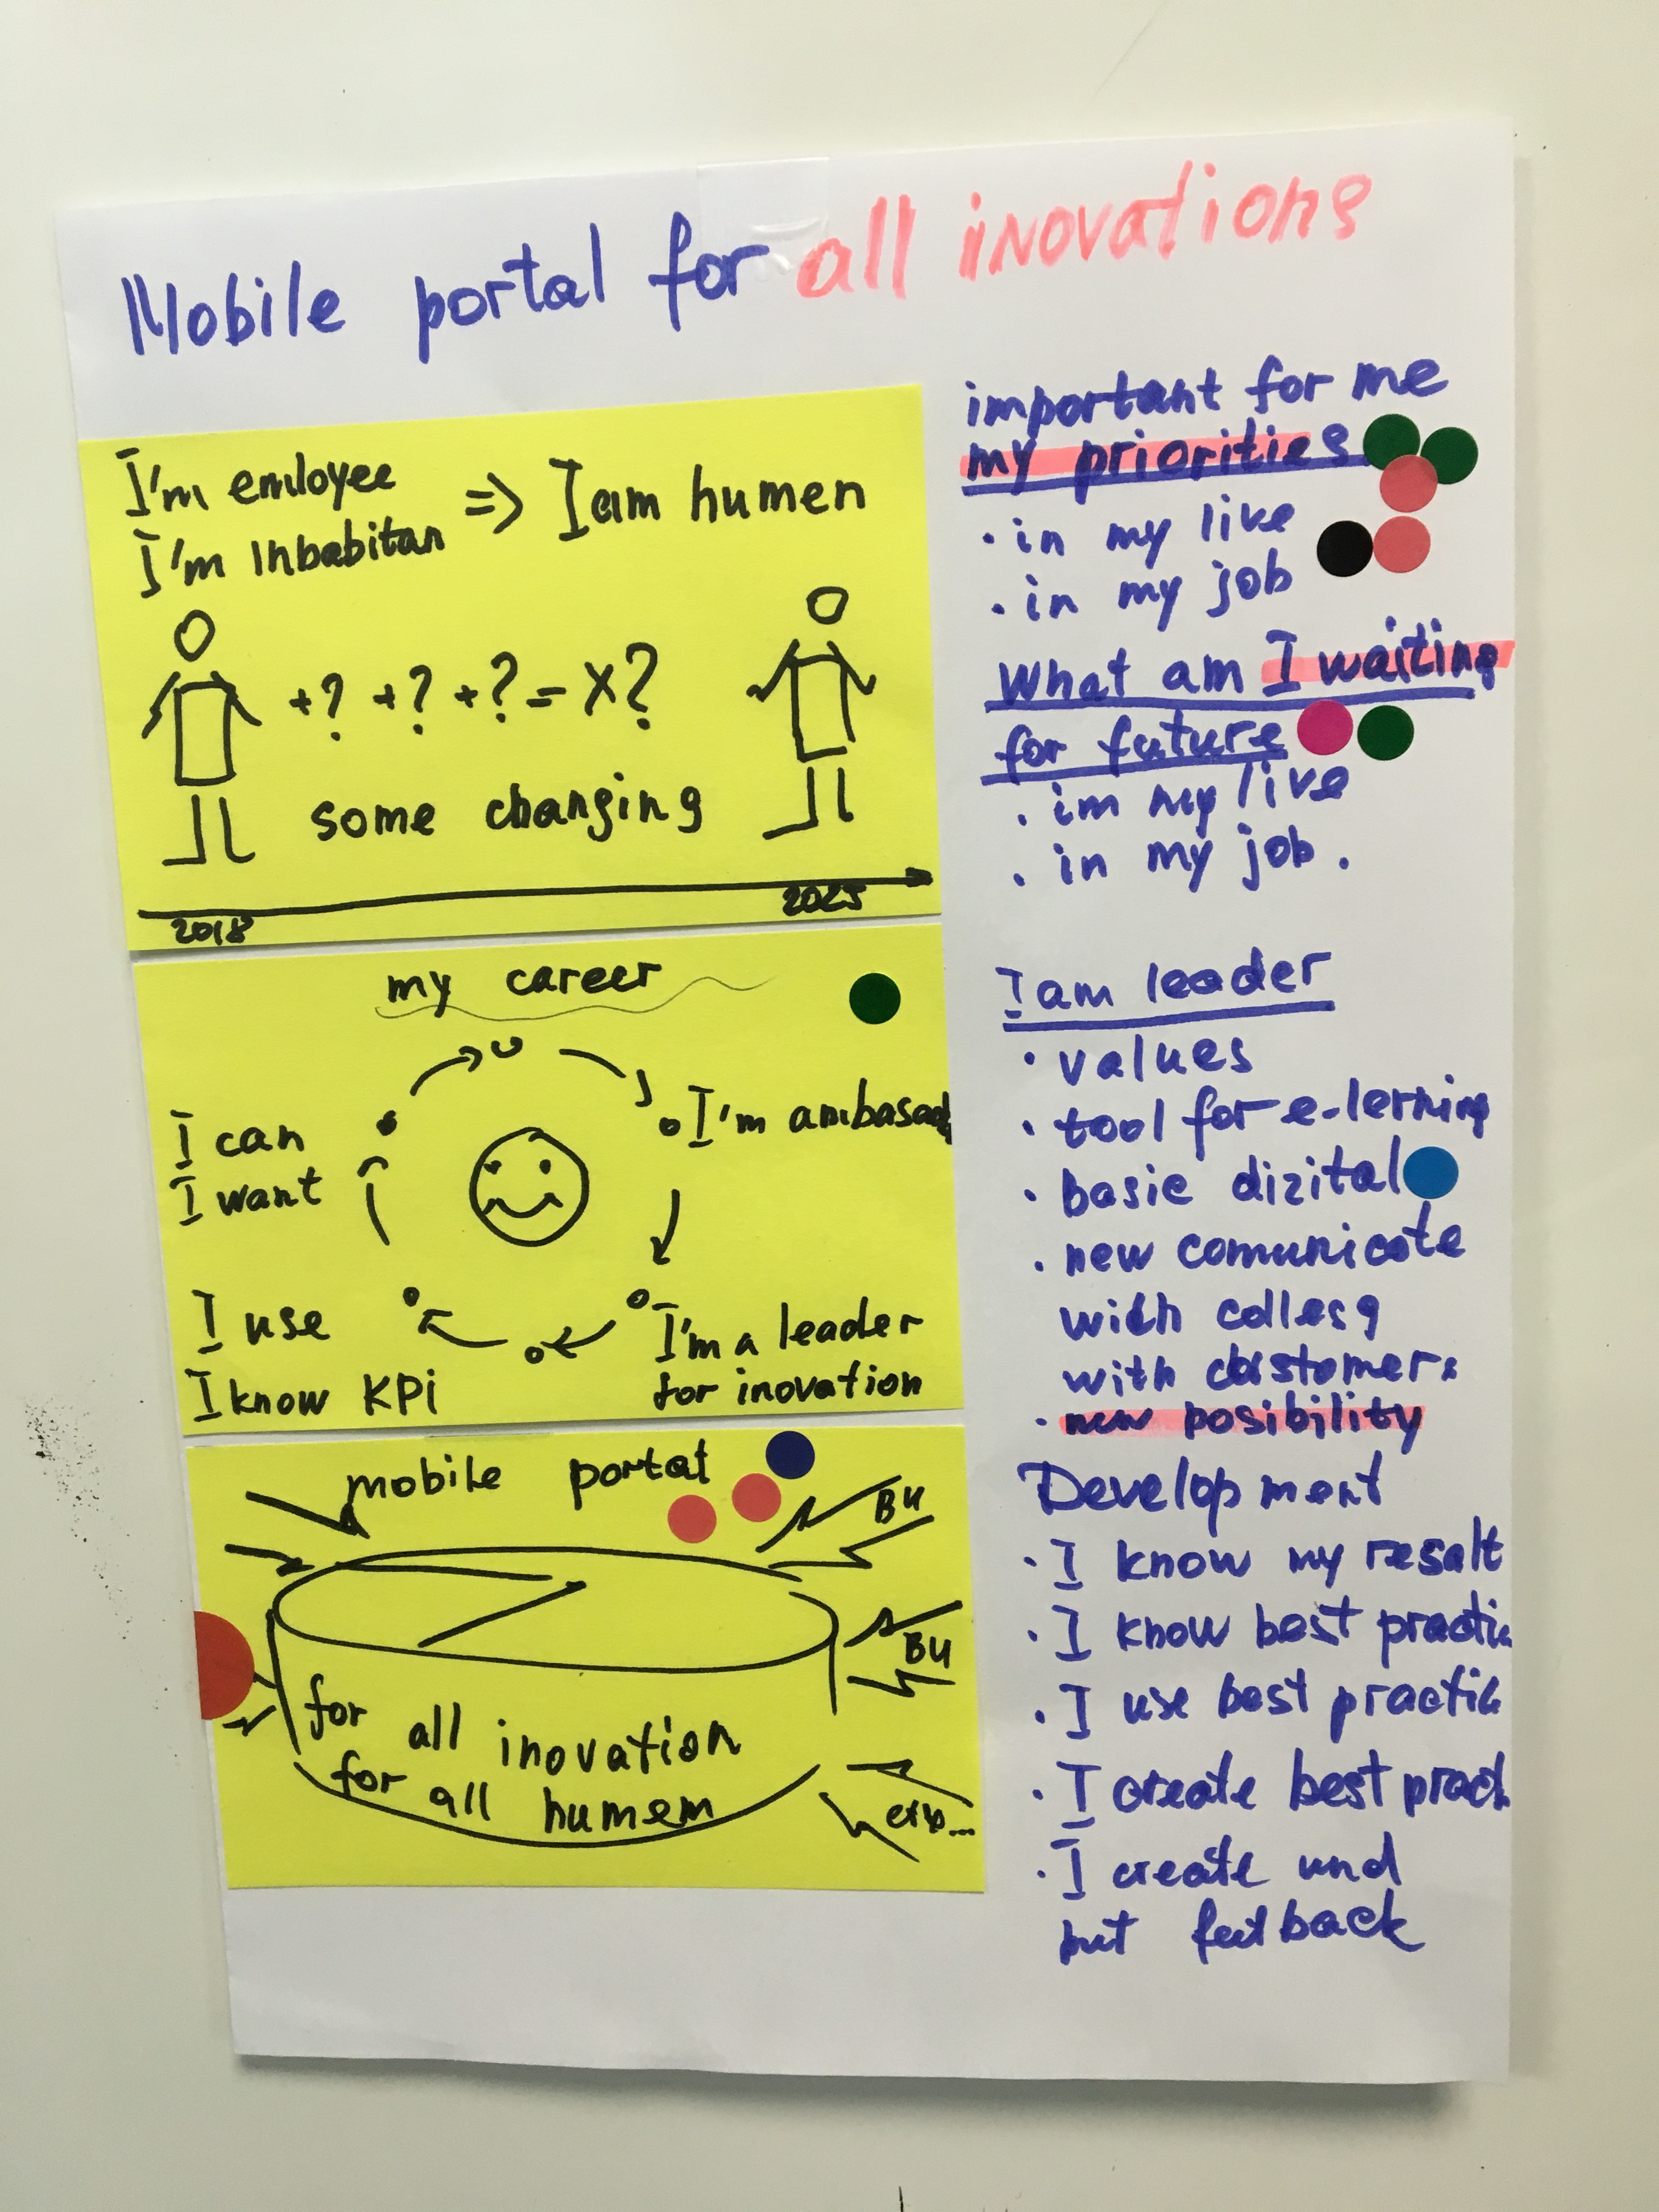 Mobile portal for all inovations
I'm emloyee
I'm Inbabitan
=> I am humen
+? +? +? = x?
some changing
2018
2025
my career
I'm ambasad
I can
I want
I use
I know KPi
I'm a leader
for inovation
mobile portal
BU
BU
for all inovation
for all humem
important for me
my priorities
. in my live
. in my job
What am I waiting
for future
. im my live
. in my job.
I am leader
. values
. tool for e-lerning
. basic dizital
. new comunicate
with colleg
with customers
. new posibility
Development
. I know my resalt
. I know best practic
. I use best practic
. I create best pract
. I create und
but feetback